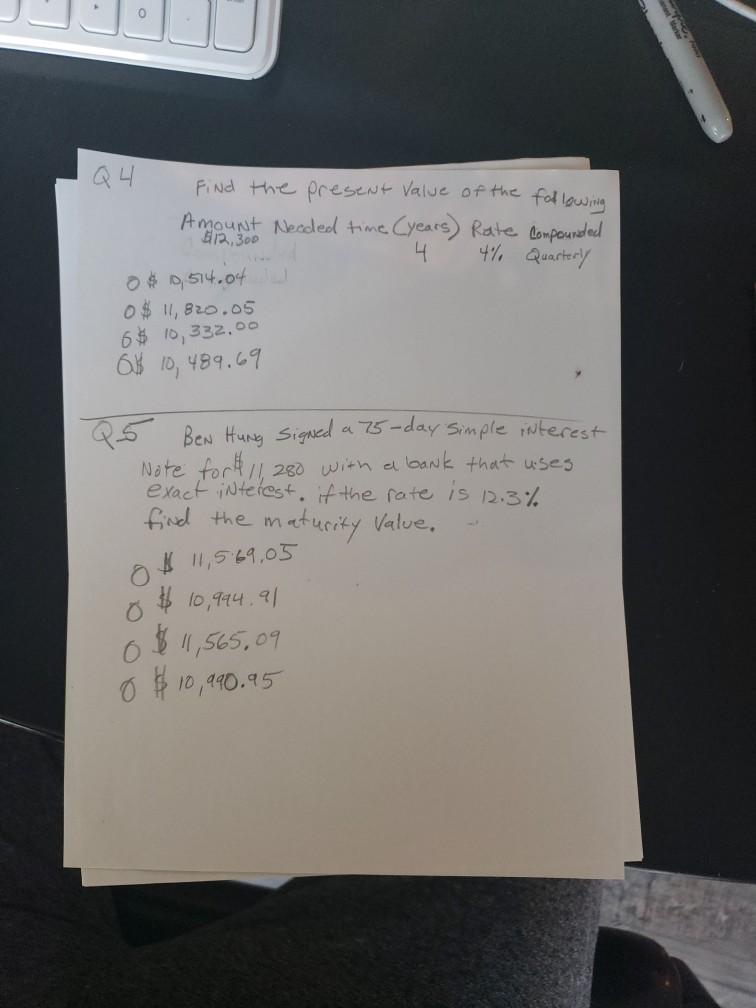 Q4
Find the present value of the following
Amount Needed time (years) Rate Compounded
$12,300 4 4% Quarterly
O $ 10,514.04
O $ 11,820.05
O $ 10,332.00
O $ 10,489.69
Q5 Ben Hung signed a 75-day simple interest
Note for $11,280 with a bank that uses
exact interest. if the rate is 12.3%
find the maturity value.
O $ 11,569.05
O $ 10,994.91
O $ 11,565.09
O $ 10,990.95